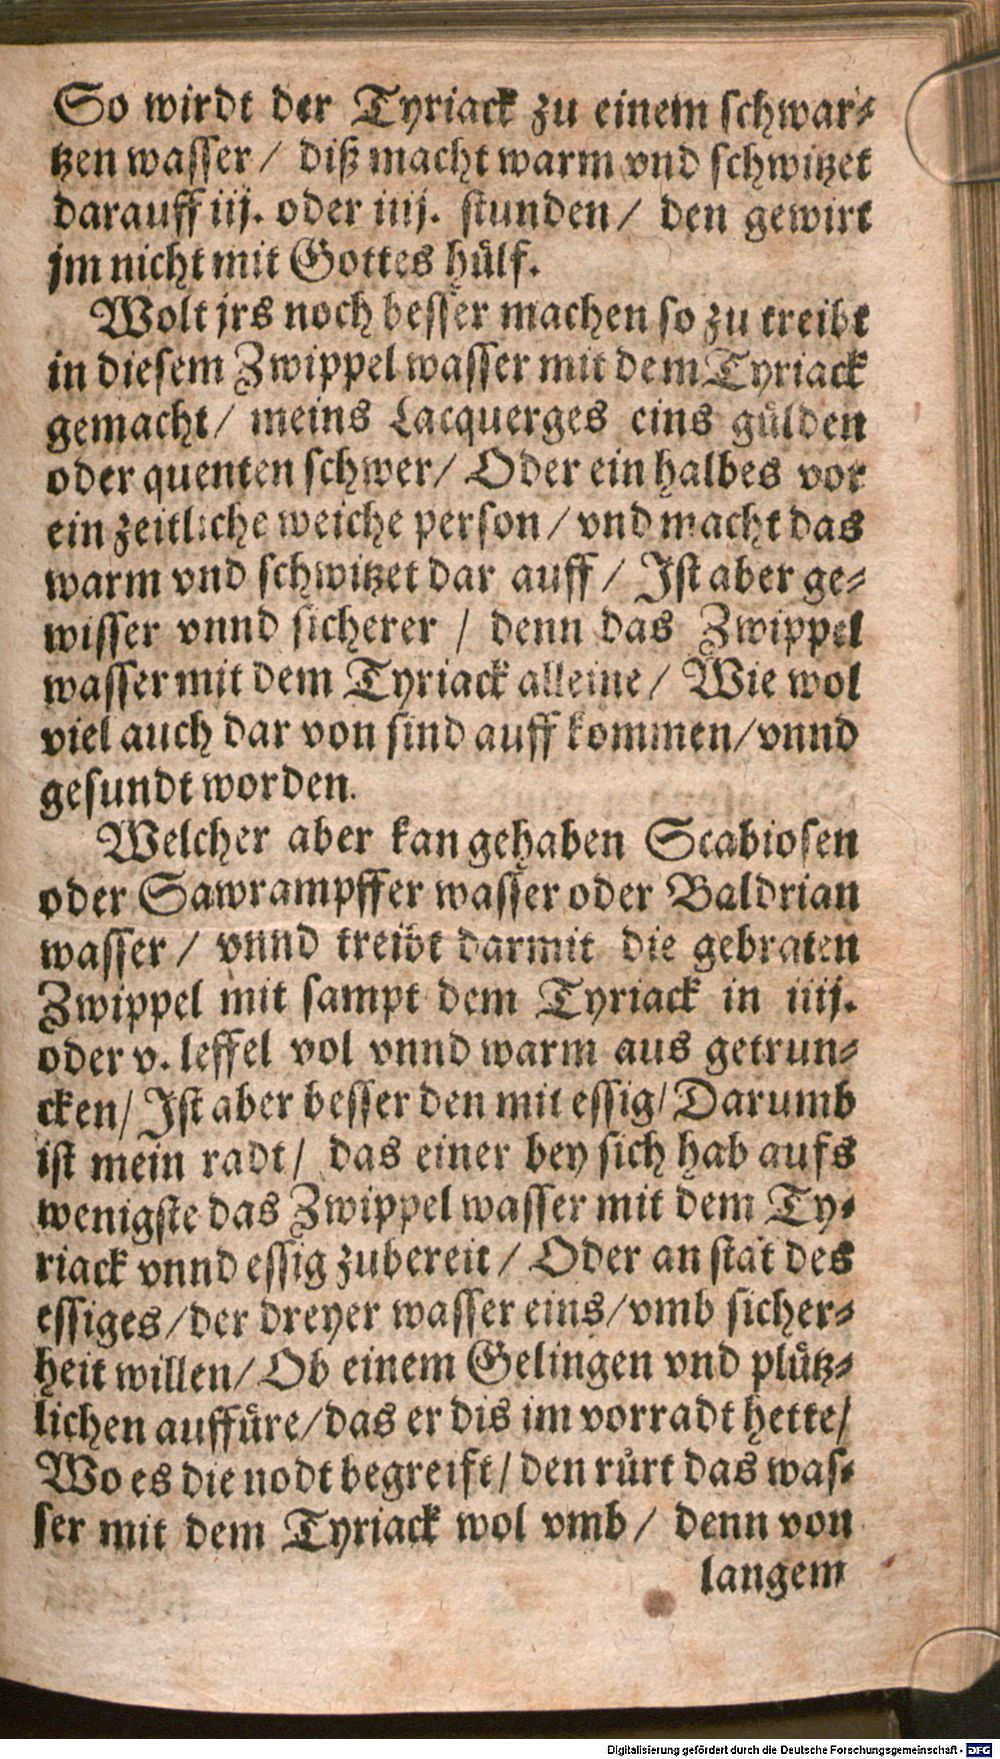 So wirdt der Tyriack zu einem schwar⸗
tzen wasser / diß macht warm vnd schwitzet
darauff iij. oder iiij. stunden / den gewirt
jm nicht mit Gottes hůlf.
Wolt jrs noch besser machen so zu treibt
in diesem Zwippel wasser mit dem Tyriack
gemacht / meins Lacquerges eins gůlden
oder quenten schwer / Oder ein halbes vor
ein zeitliche weiche person / vnd macht das
warm vnd schwitzet dar auff / Ist aber ge⸗
wisser vnnd sicherer / denn das Zwippel
wasser mit dem Tyriack alleine / Wie wol
viel auch dar von sind auff kommen / vnnd
gesundt worden.
Welcher aber kan gehaben Scabiosen
oder Sawrampffer wasser oder Baldrian
wasser / vnnd treibt darmit die gebraten
Zwippel mit sampt dem Tyriack in iiij.
oder v. leffel vol vnnd warm aus getrun⸗
cken / Ist aber besser den mit essig / Darumb
ist mein radt / das einer bey sich hab aufs
wenigste das Zwippel wasser mit dem Ty⸗
riack vnnd essig zubereit / Oder an stat des
essiges / der dreyer wasser eins / vmb sicher⸗
heit willen / Ob einem Gelingen vnd plůtz⸗
lichen auffůre / das er dis im vorradt hette /
Wo es die nodt begreift / den růrt das was⸗
ser mit dem Tyriack wol vmb / denn von
langem
Digitalisierung gefördert durch die Deutsche Forschungsgemeinschaft - DFG